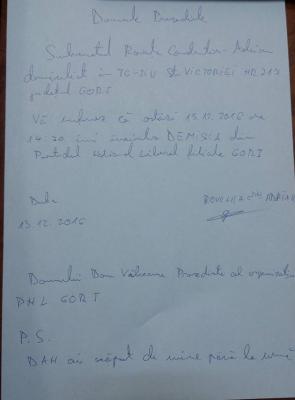 Domnule Presedinte
Subsemnatul Constantin-Adrian
domiciliat în TG-JIU Str VICTORIEI NR 213
judetul GORJ
Vă informez că astăzi 13.12.2016 ora
14.30 îmi înaintez DEMISIA din
Partidul National Liberal filiala GORJ
Data
13.12.2016
Domnului Dan Vâlceanu Presedinte al organizatiei
PNL GORJ
P.S.
DAH ai scăpat de mine până la urmă